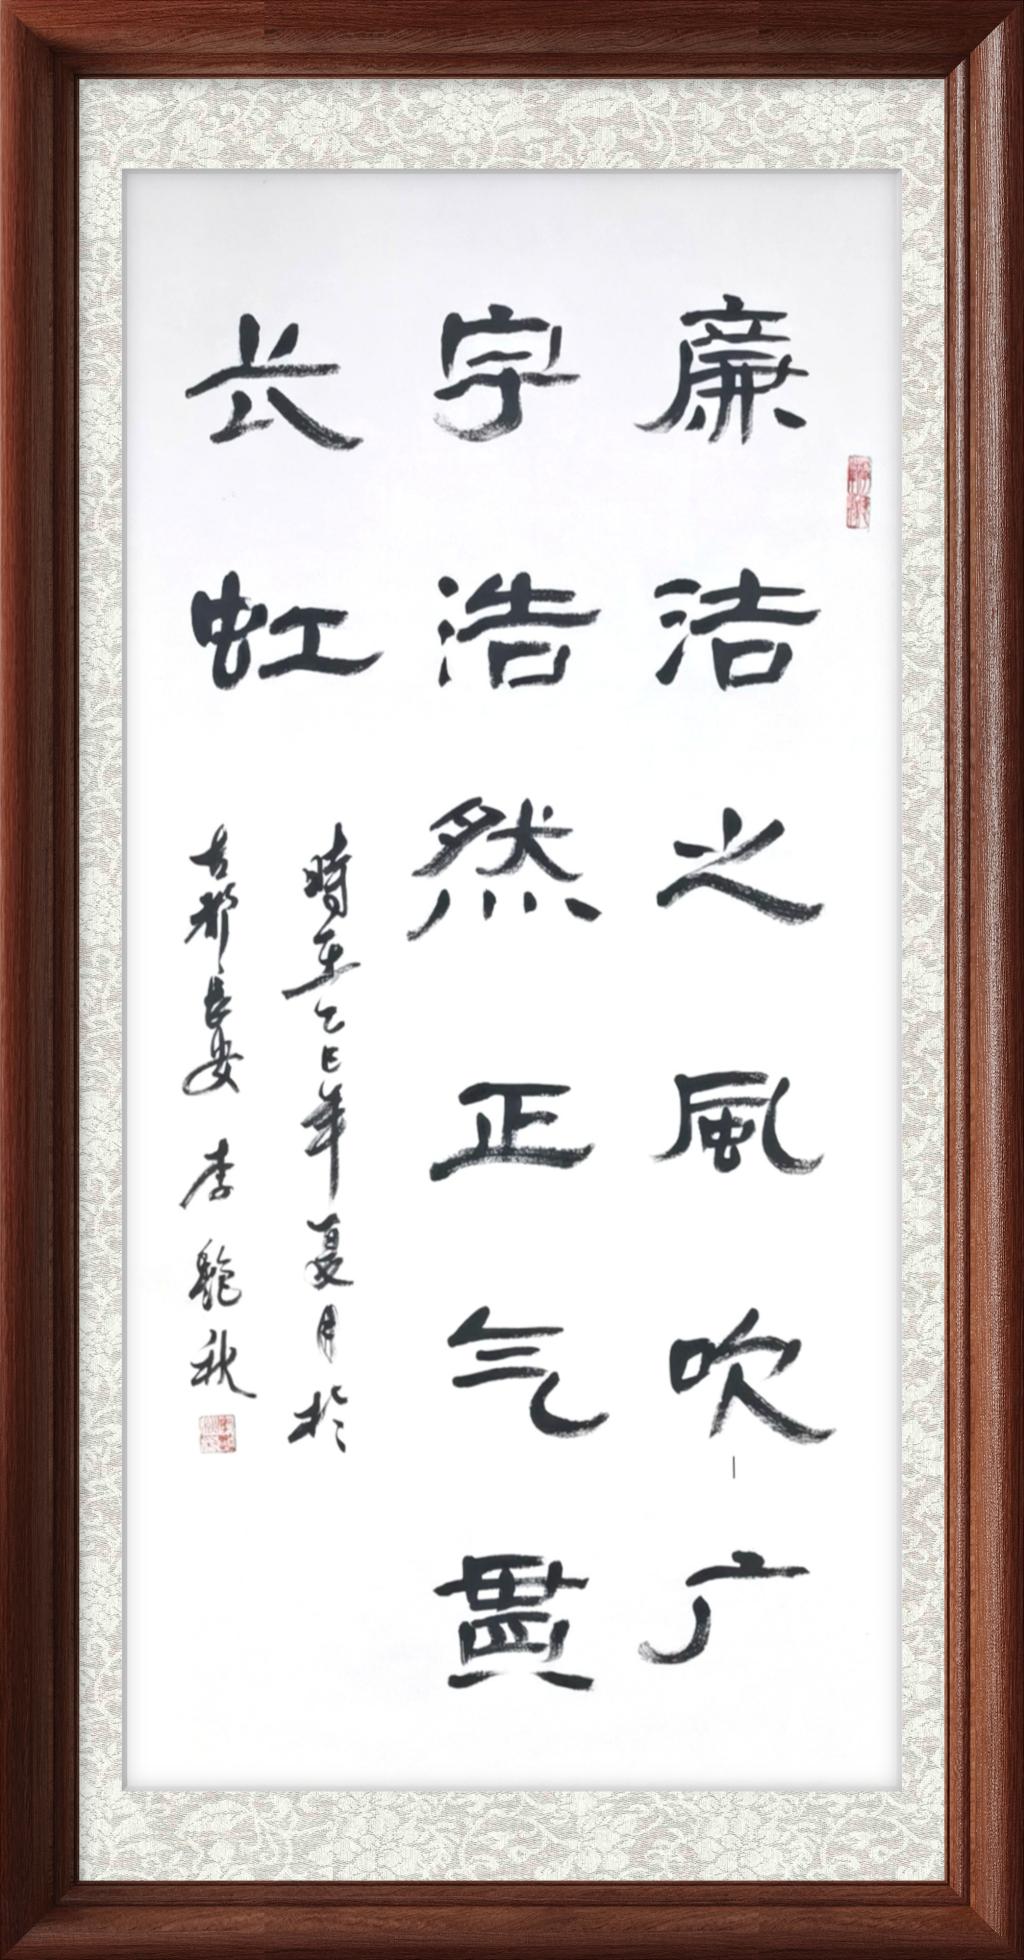 廉洁之風吹广
宇浩然正气貫
长虹
時在乙巳年夏月於
古都長安 李 秋